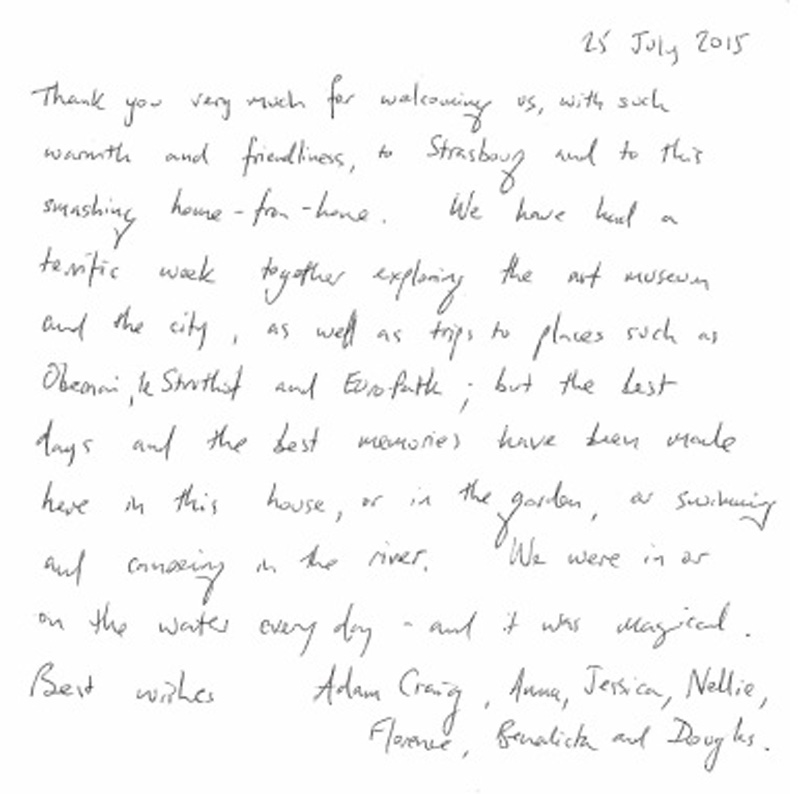 25 July 2015
Thank you very much for welcoming us, with such
warmth and friendliness, to Strasbourg and to this
smashing home-from-home. We have had a
terrific week together exploring the art museum
and the city, as well as trips to places such as
Obernai, le Struthof and Europark; but the best
days and the best memories have been made
here in this house, or in the garden, or swimming
and canoeing in the river. We were in or
on the water every day - and it was magical.
Best wishes Adam Craig, Anna, Jessica, Nellie,
Florence, Benedicta and Douglas.